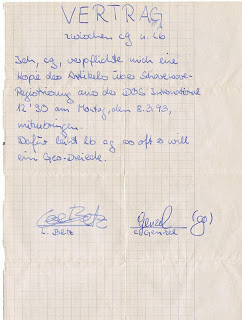 VERTRAG
zwischen cg u. cb
Ich, cg, verpflichte mich eine
Kopie des Artikels über Shareware-
Registrierung aus der DOS International
12'93 am Montag, den 8.3.93,
mitzubringen.
Dafür leiht cb cg so oft er will
ein Geo-Dreieck.
C. Betz
(cg)